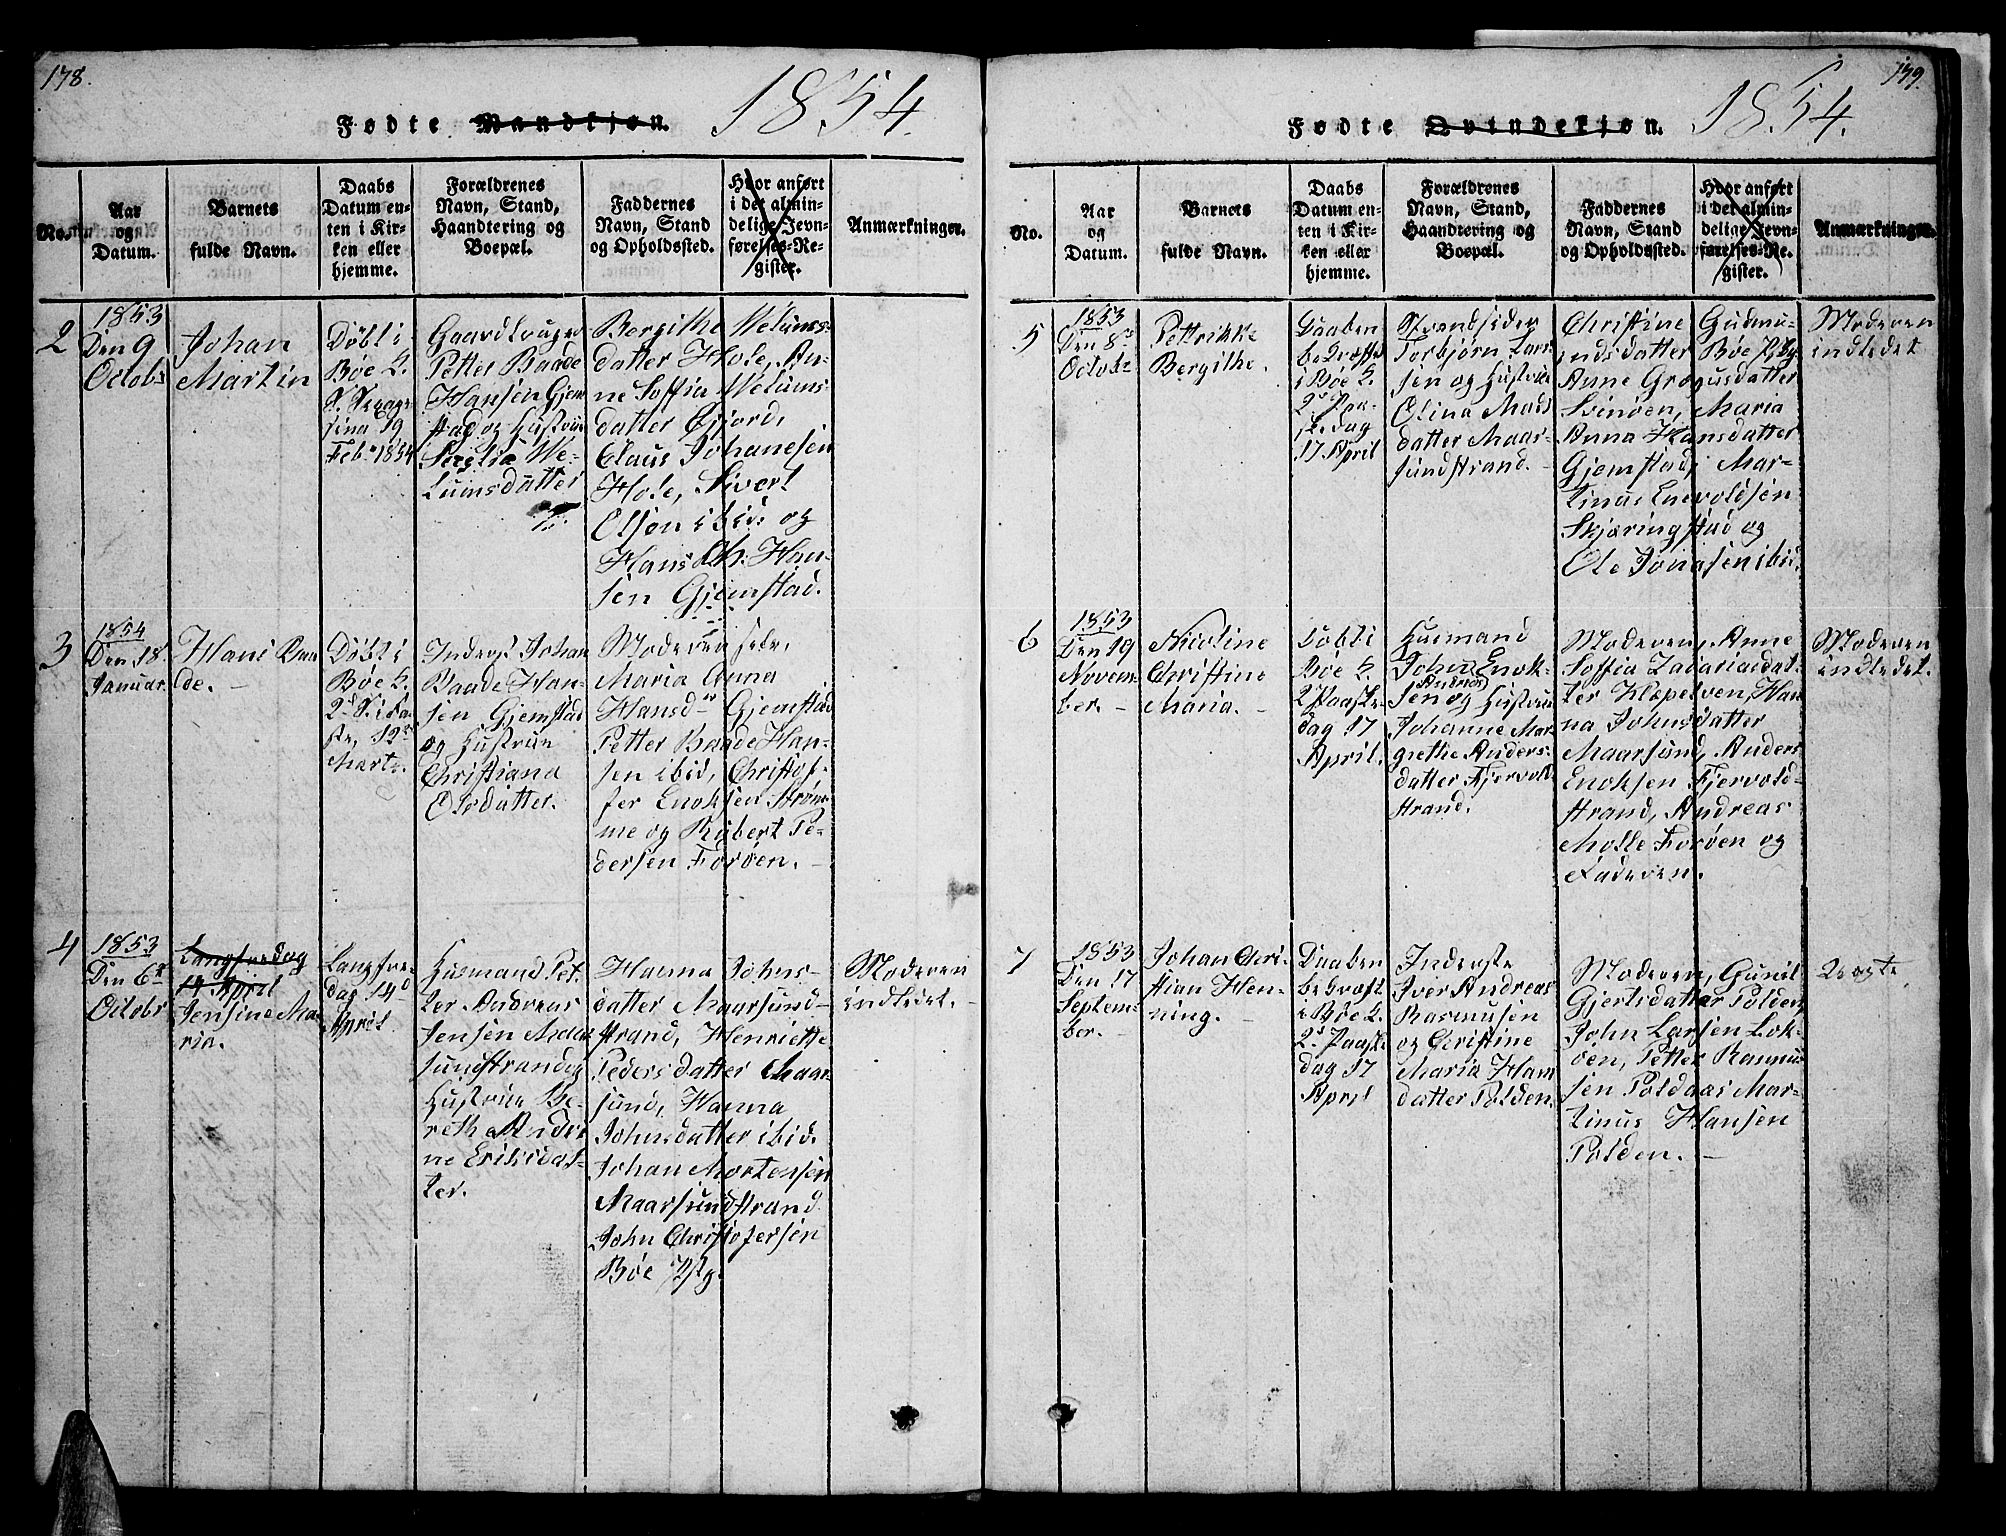 178.
Fødte Mandkjøn. 1854.
No.
Aar
og
Datum.
Barnets
fulde Navn.
Daabs
Datum en-
ten i Kir-
ken eller
hjemme.
Forældrenes
Navn, Stand,
Haandtering og
Boepæl.
Faddernes
Navn, Stand
og Opholdssted.
Hvor anført
i det almin-
delige Jevn-
førelses-Re-
gister.
Anmærkninger.
2
1853
Den 9
Octobr
Johan
Martin
Døbt i
Bøe K.
S.
19
Febr 1854
Gaardbruger
Petter Baade
Hansen Gjem-
stad og Hustrue
We-
lumsdatter
Bergithe Welums-
datter Hole, An-
ne Soffia Welums-
datter Øfjord,
Claus Johanesen
Hole, Sivert
Olsen ibid: og
Hans Chr. Han-
sen Gjemstad.
3
1854
Den 18
Januar
Hans Baa-
de.
Døbt i
Bøe K.
2d S. i Fa-
ste, 12te
Marts.
Inderst Johan
Baade Han-
sen Gjemstad
og Hustrue
Christiana
Olsdatter.
Moderen selv,
Maria Anna
Hansd Gjemstad
Petter Baade Han-
sen ibid, Christof-
fer Enoksen Strøm-
me og Rubert Pe-
dersen Forøen.
4
1853
Den 6te
Octobr
Langfredag
14 April
Jensine Ma-
ria.
Langfre-
dag 14d
April
Husmand Pet-
ter Andreas
Jensen Maar-
sundstrand og
Hustrue Be-
reth Andri-
ne Eriksdat-
ter.
Hanna Johns-
datter Maarsund-
strand, Henriette
Pedersdatter Maar-
sund, Hanna
Johnsdatter ibid.
Johan Mortensen
Maarsundstrand
John Christofersen
Bøe Pstg.
Moderen
indledet.
179.
Fødte Qvindekjøn. 1854.
No.
Aar
og
Datum.
Barnets
fulde Navn.
Daabs
Datum en-
ten i Kir-
ken eller
hjemme.
Forældrenes
Navn, Stand,
Haandtering og
Boepæl.
Faddernes
Navn, Stand
og Opholdssted.
Hvor anført
i det almin-
delige Jevn-
førelses-Re-
gister.
Anmærkninger.
5
1853
Den 8de
Octobr
Pettrikke
Bergithe.
Daaben
bekræftet
i Bøe K.
2d Paa-
skedag
17 April
Strandsidder
Torbjørn Lar-
sen og Hustrue
Elina Mads
datter Maar-
sundstrand.
Christine Gudmu-
ndsdatter Bøe Pstg.
Anne Gregusdatter
Svinøen, Maria
Anna Hansdatter
Gjemstad, Mar-
tinus Enevoldsen
Skjæringstad og
Ole Jonasen ibid.
Moderen
indledet
6
1853
Den 19
Novem-
ber.
Nicoline
Christine
Maria.
Døbt i
Bøe K.
2d Paaske-
dag 17
April.
Husmand
Johan Enok-
Andreas
sen og Hustrue
Johanne Mar-
grethe Anders-
datter Fjervold-
strand.
Moderen, Anne
Soffia Zakariasdat-
ter Klepelven, Han-
na Johnsdatter
Maarsund, Anders
Enoksen Fjervold-
strand, Andreas
Molle Forøen og
Faderen.
Moderen
indledet.
7
1853
Den 17
Septem-
ber.
Johan Chri-
stian Hen-
ning.
Daaben
bekræft.
i Bøe K.
2d Paaske
dag 17
April
Inderste
Iver Andreas
Rasmusen
og Christine
Maria Hans
datter Polden.
Moderen, Gunil
Gjertsdatter Polden,
John Larsen Lok-
øen, Petter Rasmu-
sen Poldaas Mar-
tinus Hansen
Polden.